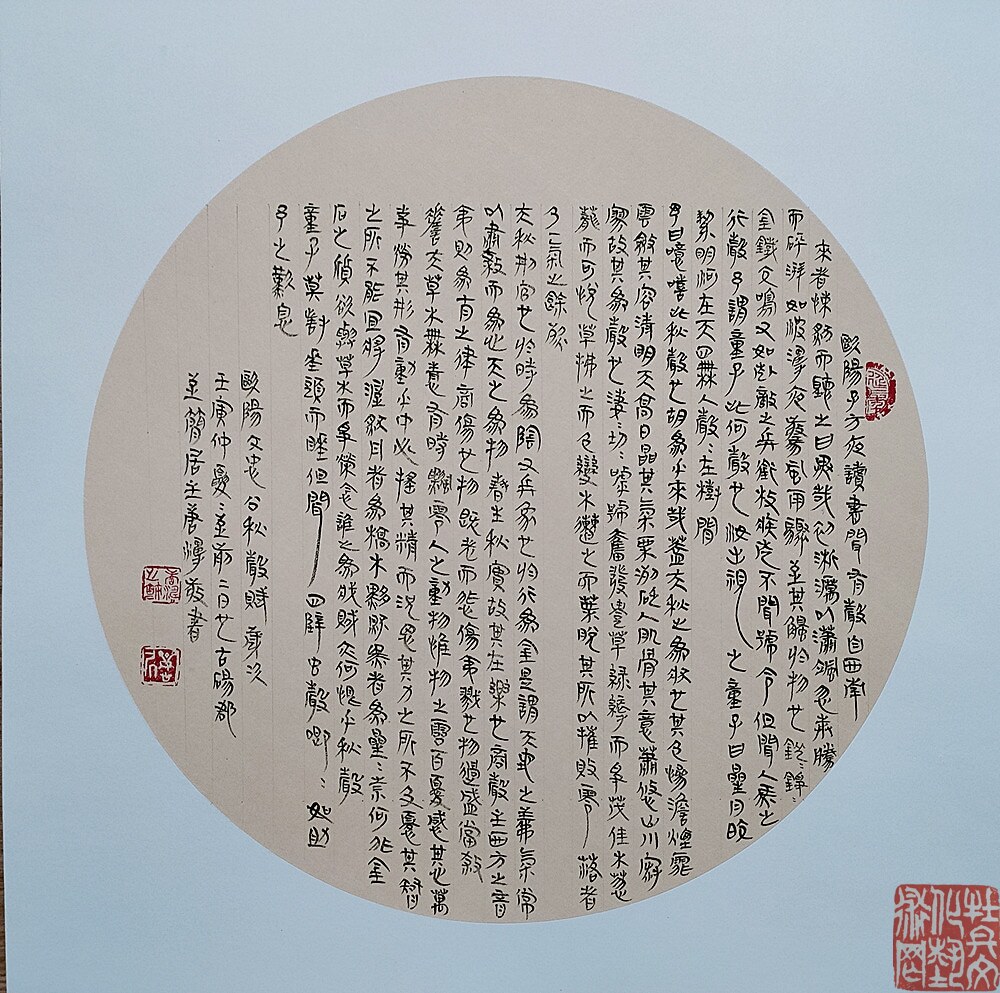 歐陽子方夜讀書聞有聲自西南
來者悚然而聽之曰異哉初淅瀝以瀟颯忽奔騰
而砰湃如波濤夜驚風雨驟至其觸於物也鏦鏦錚錚
金鐵交鳴又如赴敵之兵銜枚疾走不聞號令但聞人馬之
行聲予謂童子此何聲也汝出視之童子曰星月皎
潔明河在天四無人聲聲在樹間
予曰噫嘻此秋聲也胡為乎來哉蓋夫秋之為狀也其色慘澹煙霏
雲斂其容清明天高日晶其氣栗冽砭人肌骨其意蕭條山川寂
寥故其為聲也淒淒切切呼號奮發豐草綠縟而爭茂佳木蔥
蘢而可悅草拂之而色變木遭之而葉脫其所以摧敗零落者
乃氣之餘烈
夫秋刑官也於時為陰又兵象也於行為金是謂天地之義氣常
以肅殺而為心天之為物春生秋實故其在樂也商聲主西方之音
夷則為七月之律商傷也物既老而悲傷夷戮也物過盛當殺
嗟夫草木無情有時飄零人之動物惟物之靈百憂感其心萬
事勞其形有動乎中必搖其精而況思其力之所不及憂其智
之所不能宜其渥然丹者為槁木黟然黑者為星星奈何非金
石之質欲與草木而爭榮念誰之為戕賊亦何恨乎秋聲
童子莫對垂頭而睡但聞四壁蟲聲唧唧如助
予之歎息
歐陽文忠公秋聲賦歲次
壬寅仲夏至前二日也古碭郡
至簡居主書